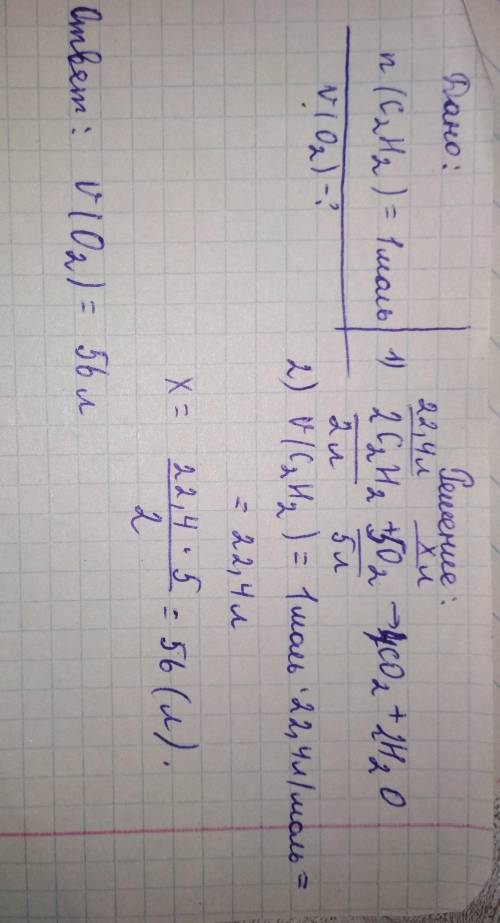 Дано:
n(C₂H₂) = 1 моль
V(O₂) - ?
Решение:
22,4 л x л
1) 2C₂H₂ + 5O₂ → 4CO₂ + 2H₂O
2 л 5 л
2) V(C₂H₂) = 1 моль · 22,4 л/моль =
= 22,4 л
x = 22,4 · 5 / 2 = 56 (л).
Ответ: V(O₂) = 56 л